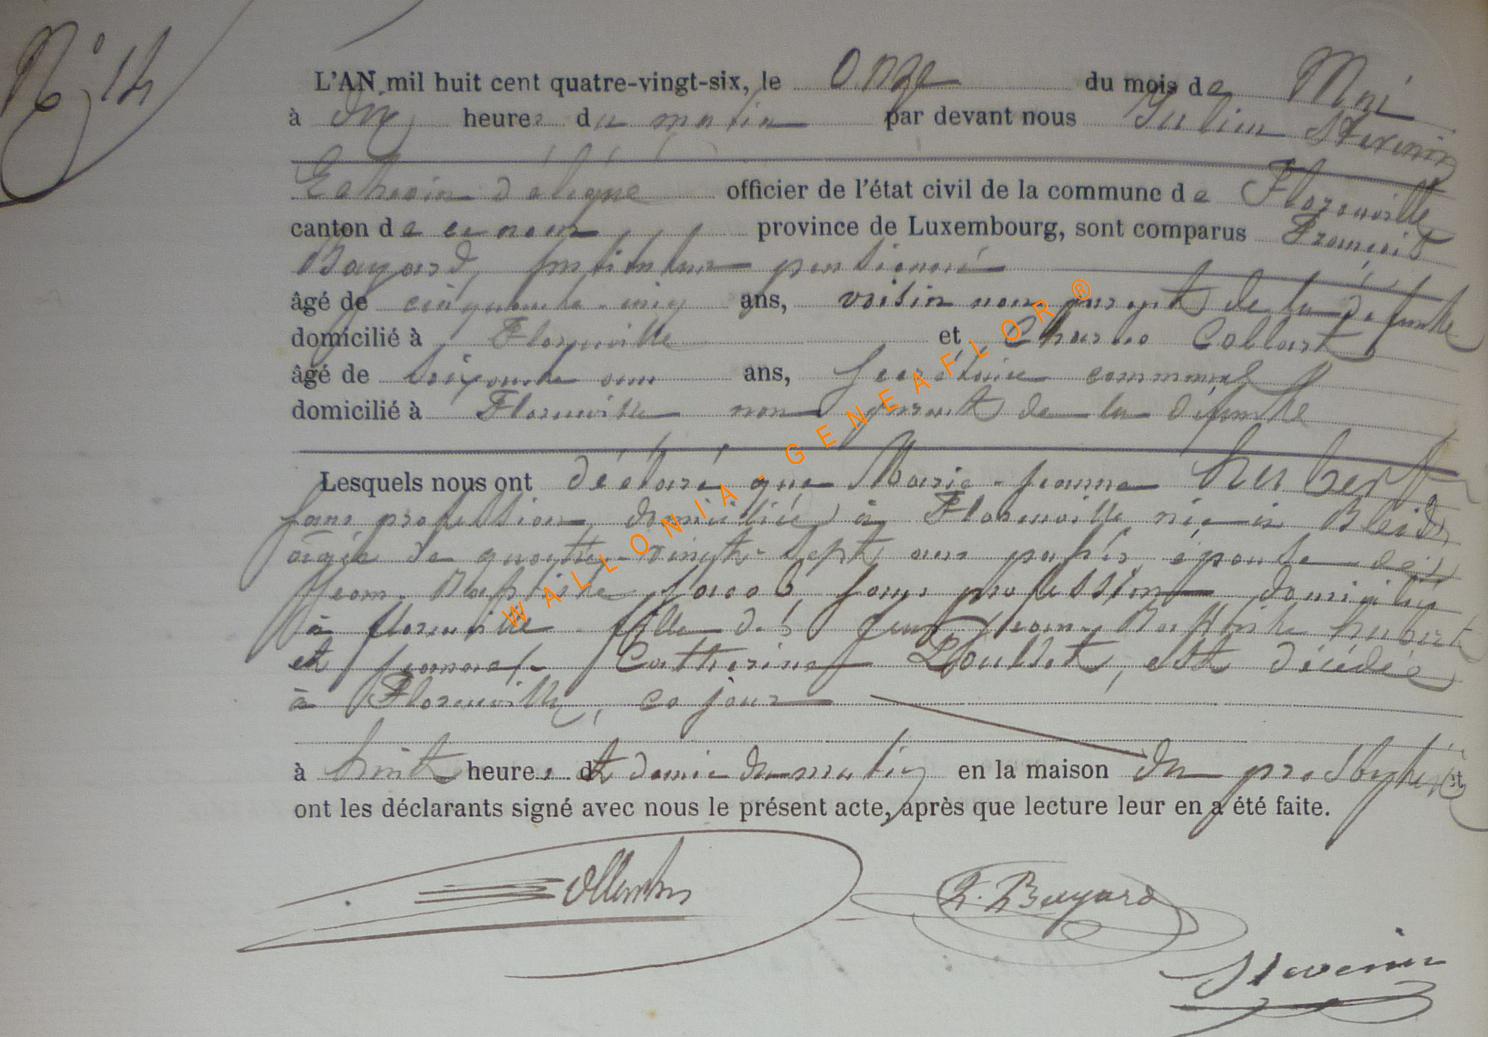 N° 14
L'AN mil huit cent quatre-vingt-six, le onze du mois de Mai
à dix heures du matin par devant nous Julien Stevenin
Echevin délégué officier de l'état civil de la commune de Florenville
canton de ce nom province de Luxembourg, sont comparus François
Bayard, instituteur pensionné
âgé de cinquante-cinq ans, voisin non parent de la défunte
domicilié à Florenville et Charles Collart
âgé de soixante ans, secrétaire communal
domicilié à Florenville non parent de la défunte
Lesquels nous ont déclaré que Marie-Jeanne hubert
sans profession, domiciliée à Florenville née à
âgée de quatre-vingt-sept ans passés, épouse de
Jean-Baptiste Jacob, sans profession domicilié
à florenville fille des feus Jean-Baptiste hubert
et Catherine est décédée
à Florenville, ce jour
à huit heures et demie du matin en la maison du presbytère et
ont les déclarants signé avec nous le présent acte, après que lecture leur en a été faite.
Bayard
Stevenin
WALLONIA-GENEAFLOR®